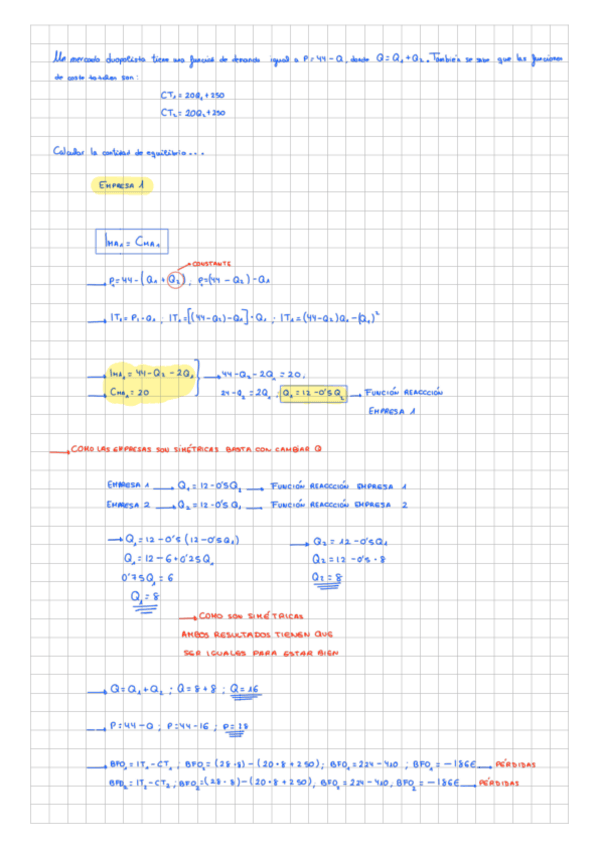 Un mercado duopolista tiene una función de demanda igual a P=44-Q, donde Q=Q₁+Q₂. También se sabe que las funciones
de coste totales son:
CT₁=20Q₁+250
CT₂=20Q₂+250
Calcular la cantidad de equilibrio...
EMPRESA 1
IMA₁=CMA₁
CONSTANTE
→ P=44-(Q₁+Q₂); P=(44-Q₂)-Q₁
→ IT₁=P₁·Q₁; IT₁=[(44-Q₂)-Q₁]·Q₁; IT₁=(44-Q₂)Q₁-(Q₁)²
→ IMA₁=44-Q₂-2Q₁ → 44-Q₂-2Q₁=20;
→ CMA₁=20 24-Q₂=2Q₁; Q₁=12-0'5Q₂ → FUNCIÓN REACCCIÓN
EMPRESA 1
→ COMO LAS EMPRESAS SON SIMÉTRICAS BASTA CON CAMBIAR Q
EMPRESA 1 → Q₁=12-0'5Q₂ → FUNCIÓN REACCCIÓN EMPRESA 1
EMPRESA 2 → Q₂=12-0'5Q₁ → FUNCIÓN REACCCIÓN EMPRESA 2
→ Q₁=12-0'5(12-0'5Q₁) → Q₂=12-0'5Q₁
Q₁=12-6+0'25Q₁ Q₂=12-0'5·8
0'75Q₁=6 Q₂=8
Q₁=8
→ COMO SON SIMÉTRICAS
AMBOS RESULTADOS TIENEN QUE
SER IGUALES PARA ESTAR BIEN
→ Q=Q₁+Q₂; Q=8+8; Q=16
→ P=44-Q; P=44-16; P=28
→ BFO₁=IT₁-CT₁; BFO₁=(28·8)-(20·8+250); BFO₁=224-410; BFO₁=-186€ → PÉRDIDAS
BFO₂=IT₂-CT₂; BFO₂=(28·8)-(20·8+250); BFO₂=224-410, BFO₂=-186€ → PÉRDIDAS